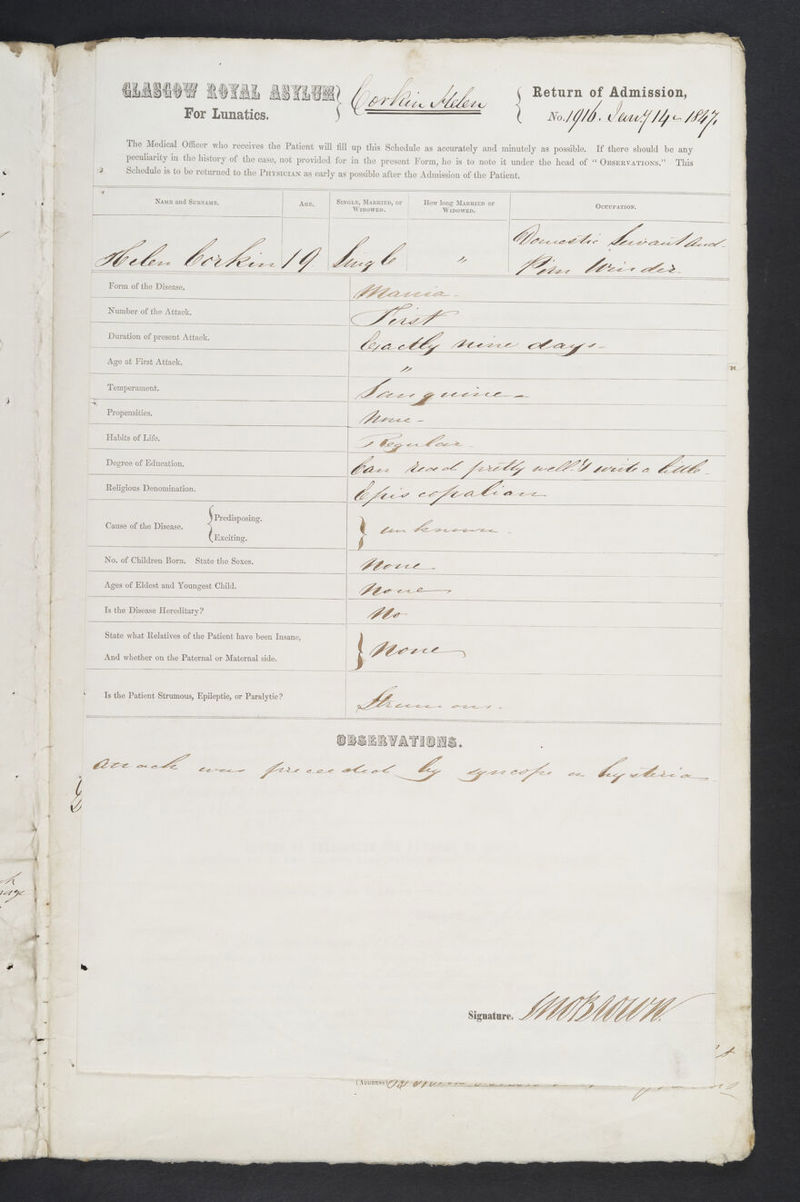 GLASGOW ROYAL ASYLUM
For Lunatics.
Corkin Helen
Return of Admission,
No. 1916. Jany 14 1847.
The Medical Officer who receives the Patient will fill up this Schedule as accurately and minutely as possible. If there should be any
peculiarity in the history of the case, not provided for in the present Form, he is to note it under the head of "OBSERVATIONS." This
Schedule is to be returned to the PHYSICIAN as early as possible after the Admission of the Patient.
NAME AND SURNAME.
AGE.
SINGLE, MARRIED, OR WIDOWED.
How long MARRIED OR WIDOWED.
OCCUPATION.
Helen Corkin 19 Single "
Domestic Servant and
Pirn Winder
Form of the Disease. Mania -
Number of the Attack. First
Duration of present Attack. Exactly nine days -
Age at First Attack. "
Temperament. Sanguine -
Propensities. None -
Habits of Life. Regular -
Degree of Education. Can read pretty well & write a little -
Religious Denomination. Episcopalian
Cause of the Disease. { Predisposing. Exciting. } unknown -
No. of Children Born. State the Sexes. None -
Ages of Eldest and Youngest Child. None
Is the Disease Hereditary? No
State what Relatives of the Patient have been Insane,
And whether on the Paternal or Maternal side. } None
Is the Patient Strumous, Epileptic, or Paralytic? Strumous.
OBSERVATIONS.
Attack was preceeded by syncope or hysteria
Signature. Jno Brown
(ADDRESS)